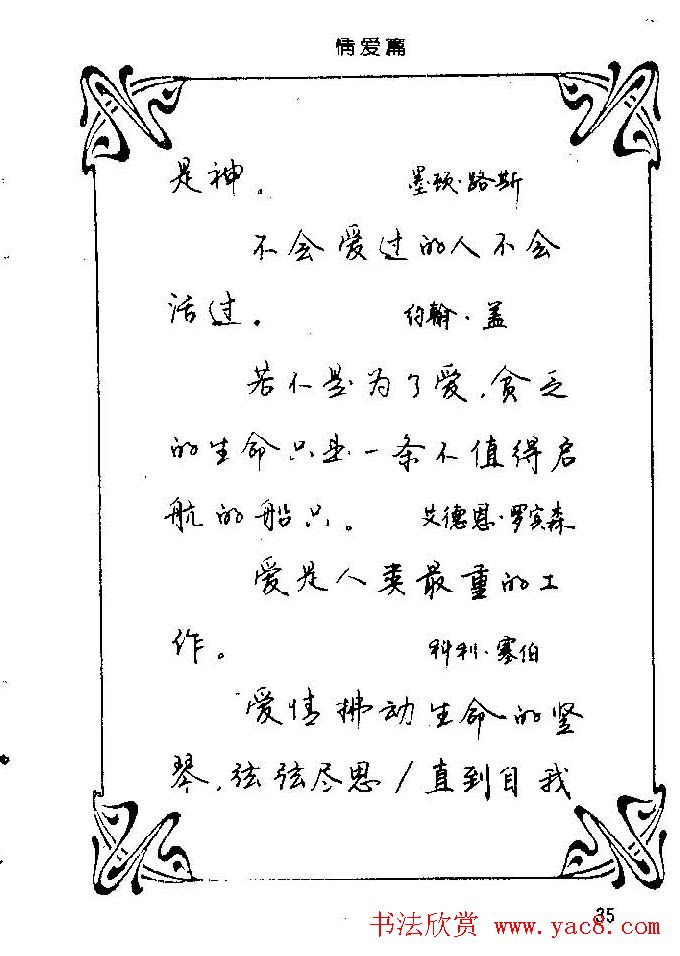 情爱篇
是神。 墨顿·路斯
不会爱过的人不会
活过。 约翰·盖
若不是为了爱,贫乏
的生命只是一条不值得启
航的船只。 艾德恩·罗宾森
爱是人类最重的工
作。 科利·塞伯
爱情拂动生命的竖
琴,弦弦尽思/直到自我
35
书法欣赏 www.yac8.com